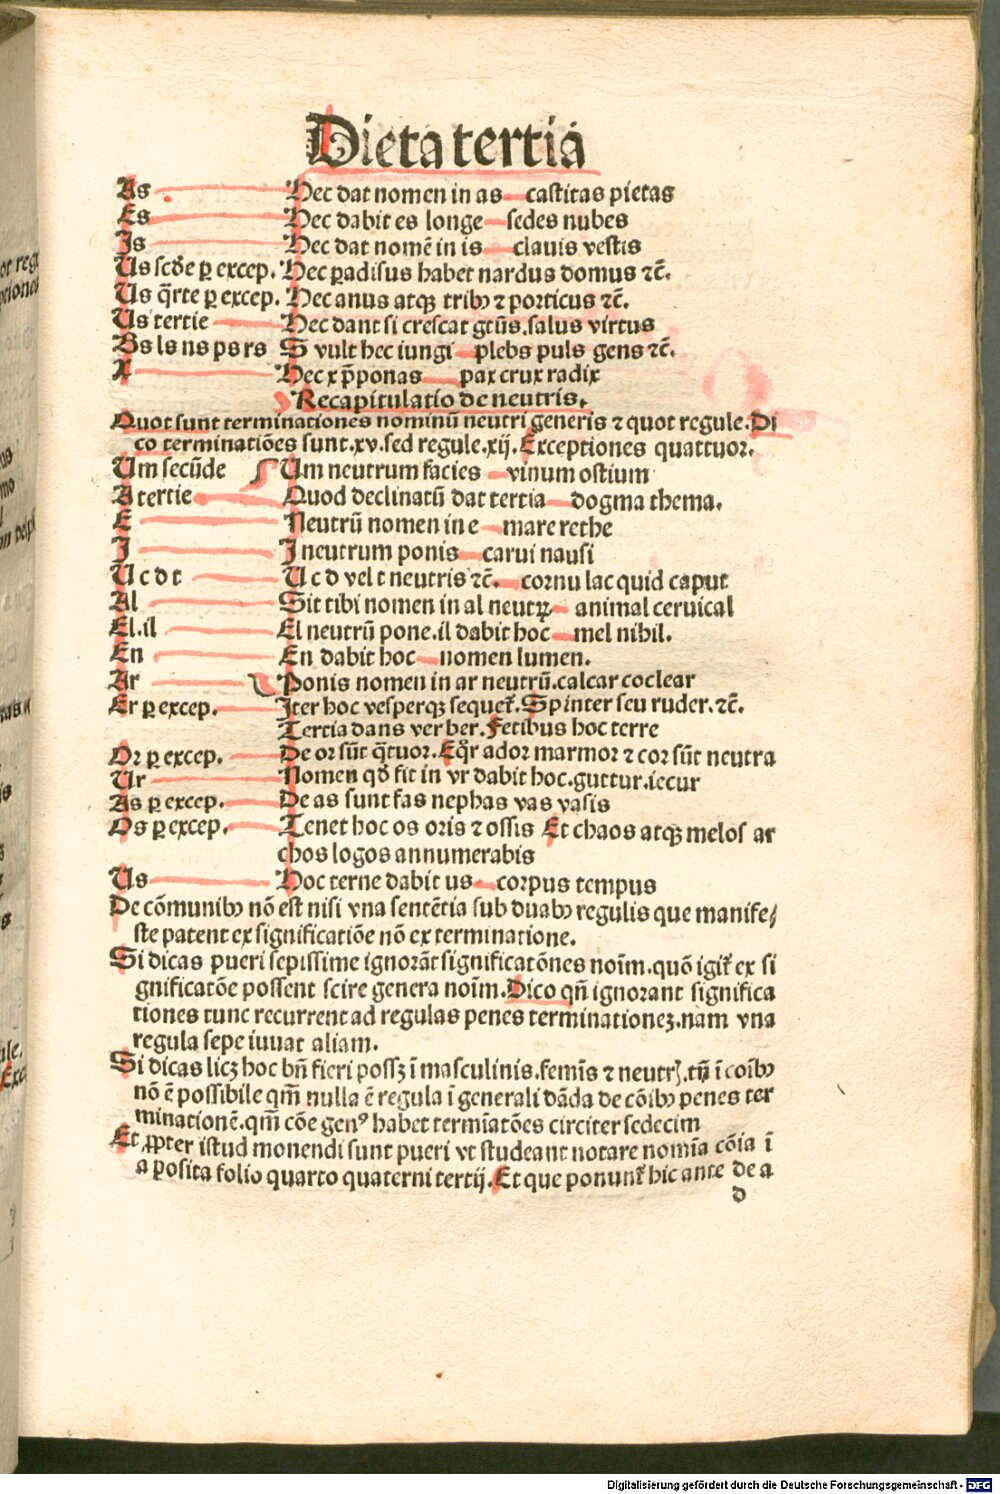 Dieta tertia
As Hec dat nomen in as castitas pietas
Es Hec dabit es longe sedes nubes
Is Hec dat nomē in is clauis vestis
Us scđe ꝑ excep. Hec ꝑadisus habet nardus domus ⁊c̄.
Us q̄rte ꝑ excep. Hec anus atqꝫ tribꝰ ⁊ porticus ⁊c̄.
Us tertie Hec dant si crescat gtūs.salus virtus
Bs ls ns ps rs S vult hec iungi plebs puls gens ⁊c̄.
X Hec x p̄ponas pax crux radix
Recapitulatio de neutris.
Quot sunt terminationes nominū neutri generis ⁊ quot regule.Di
co terminatiōes sunt.xv.sed regule.xij.Exceptiones quattuor.
Um secūde Um neutrum facies vinum ostium
A tertie Quod declinatū dat tertia dogma thema.
E Neutrū nomen in e mare rethe
I I neutrum ponis carui nausi
U c d t U c d vel t neutris ⁊c̄. cornu lac quid caput
Al Sit tibi nomen in al neutꝝ animal ceruical
El.il El neutrū pone.il dabit hoc mel nihil.
En En dabit hoc nomen lumen.
Ar Ponis nomen in ar neutrū.calcar coclear
Er ꝑ excep. Iter hoc vesperqꝫ sequet᷑.Spinter seu ruder.⁊c̄.
Tertia dans ver ber.Fetibus hoc terre
Or ꝑ excep. De or sūt q̄tuor.Eq̄r ador marmor ⁊ cor sūt neutra
Ur Nomen qđ fit in vr dabit hoc.guttur.iecur
As ꝑ excep. De as sunt fas nephas vas vasis
Os ꝑ excep. Tenet hoc os oris ⁊ ossis Et chaos atqꝫ melos ar
chos logos annumerabis
Us Hoc terne dabit us corpus tempus
De cōmunibꝰ nō est nisi vna sentētia sub duabꝰ regulis que manife/
ste patent ex significatiōe nō ex terminatione.
Si dicas pueri sepissime ignorāt significatōnes noīm.quō igit᷑ ex si
gnificatōe possent scire genera noīm.Dico qn̄ ignorant significa
tiones tunc recurrent ad regulas penes terminationeꝫ.nam vna
regula sepe iuuat aliam.
Si dicas licꝫ hoc bn̄ fieri possꝫ ī masculinis.femīs ⁊ neutꝝ.tn̄ ī coībꝰ
nō ē possibile qm̄ nulla ē regula ī generali dāda de cōibꝰ penes ter
minationē.qm̄ cōe genꝰ habet termīatōes circiter sedecim
Et ꝓpter istud monendi sunt pueri vt studeant notare nomīa cōia ī
a posita folio quarto quaterni tertij.Et que ponunt᷑ hic ante de a
d
Digitalisierung gefördert durch die Deutsche Forschungsgemeinschaft - DFG